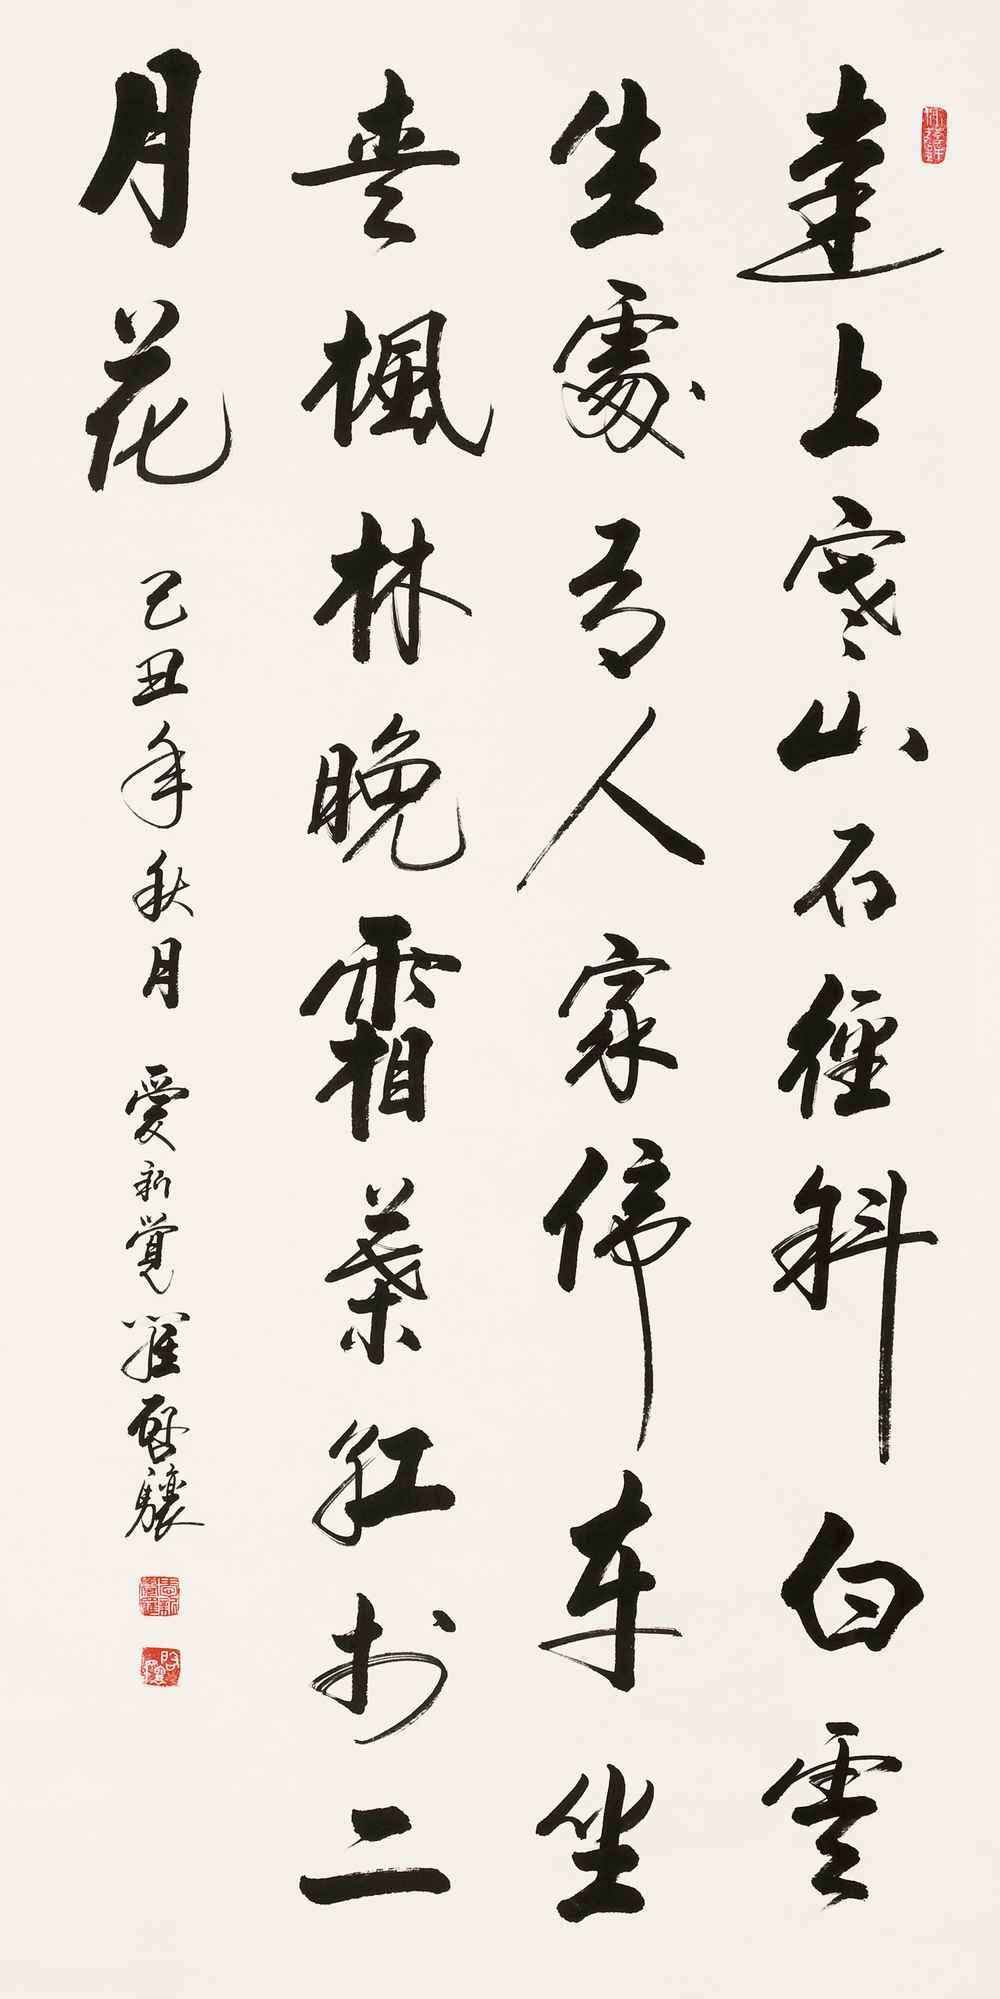 遠上寒山石徑斜白雲
生處有人家停車坐
愛楓林晚霜葉紅於二
月花
己丑年秋月 愛新覺羅啟驤